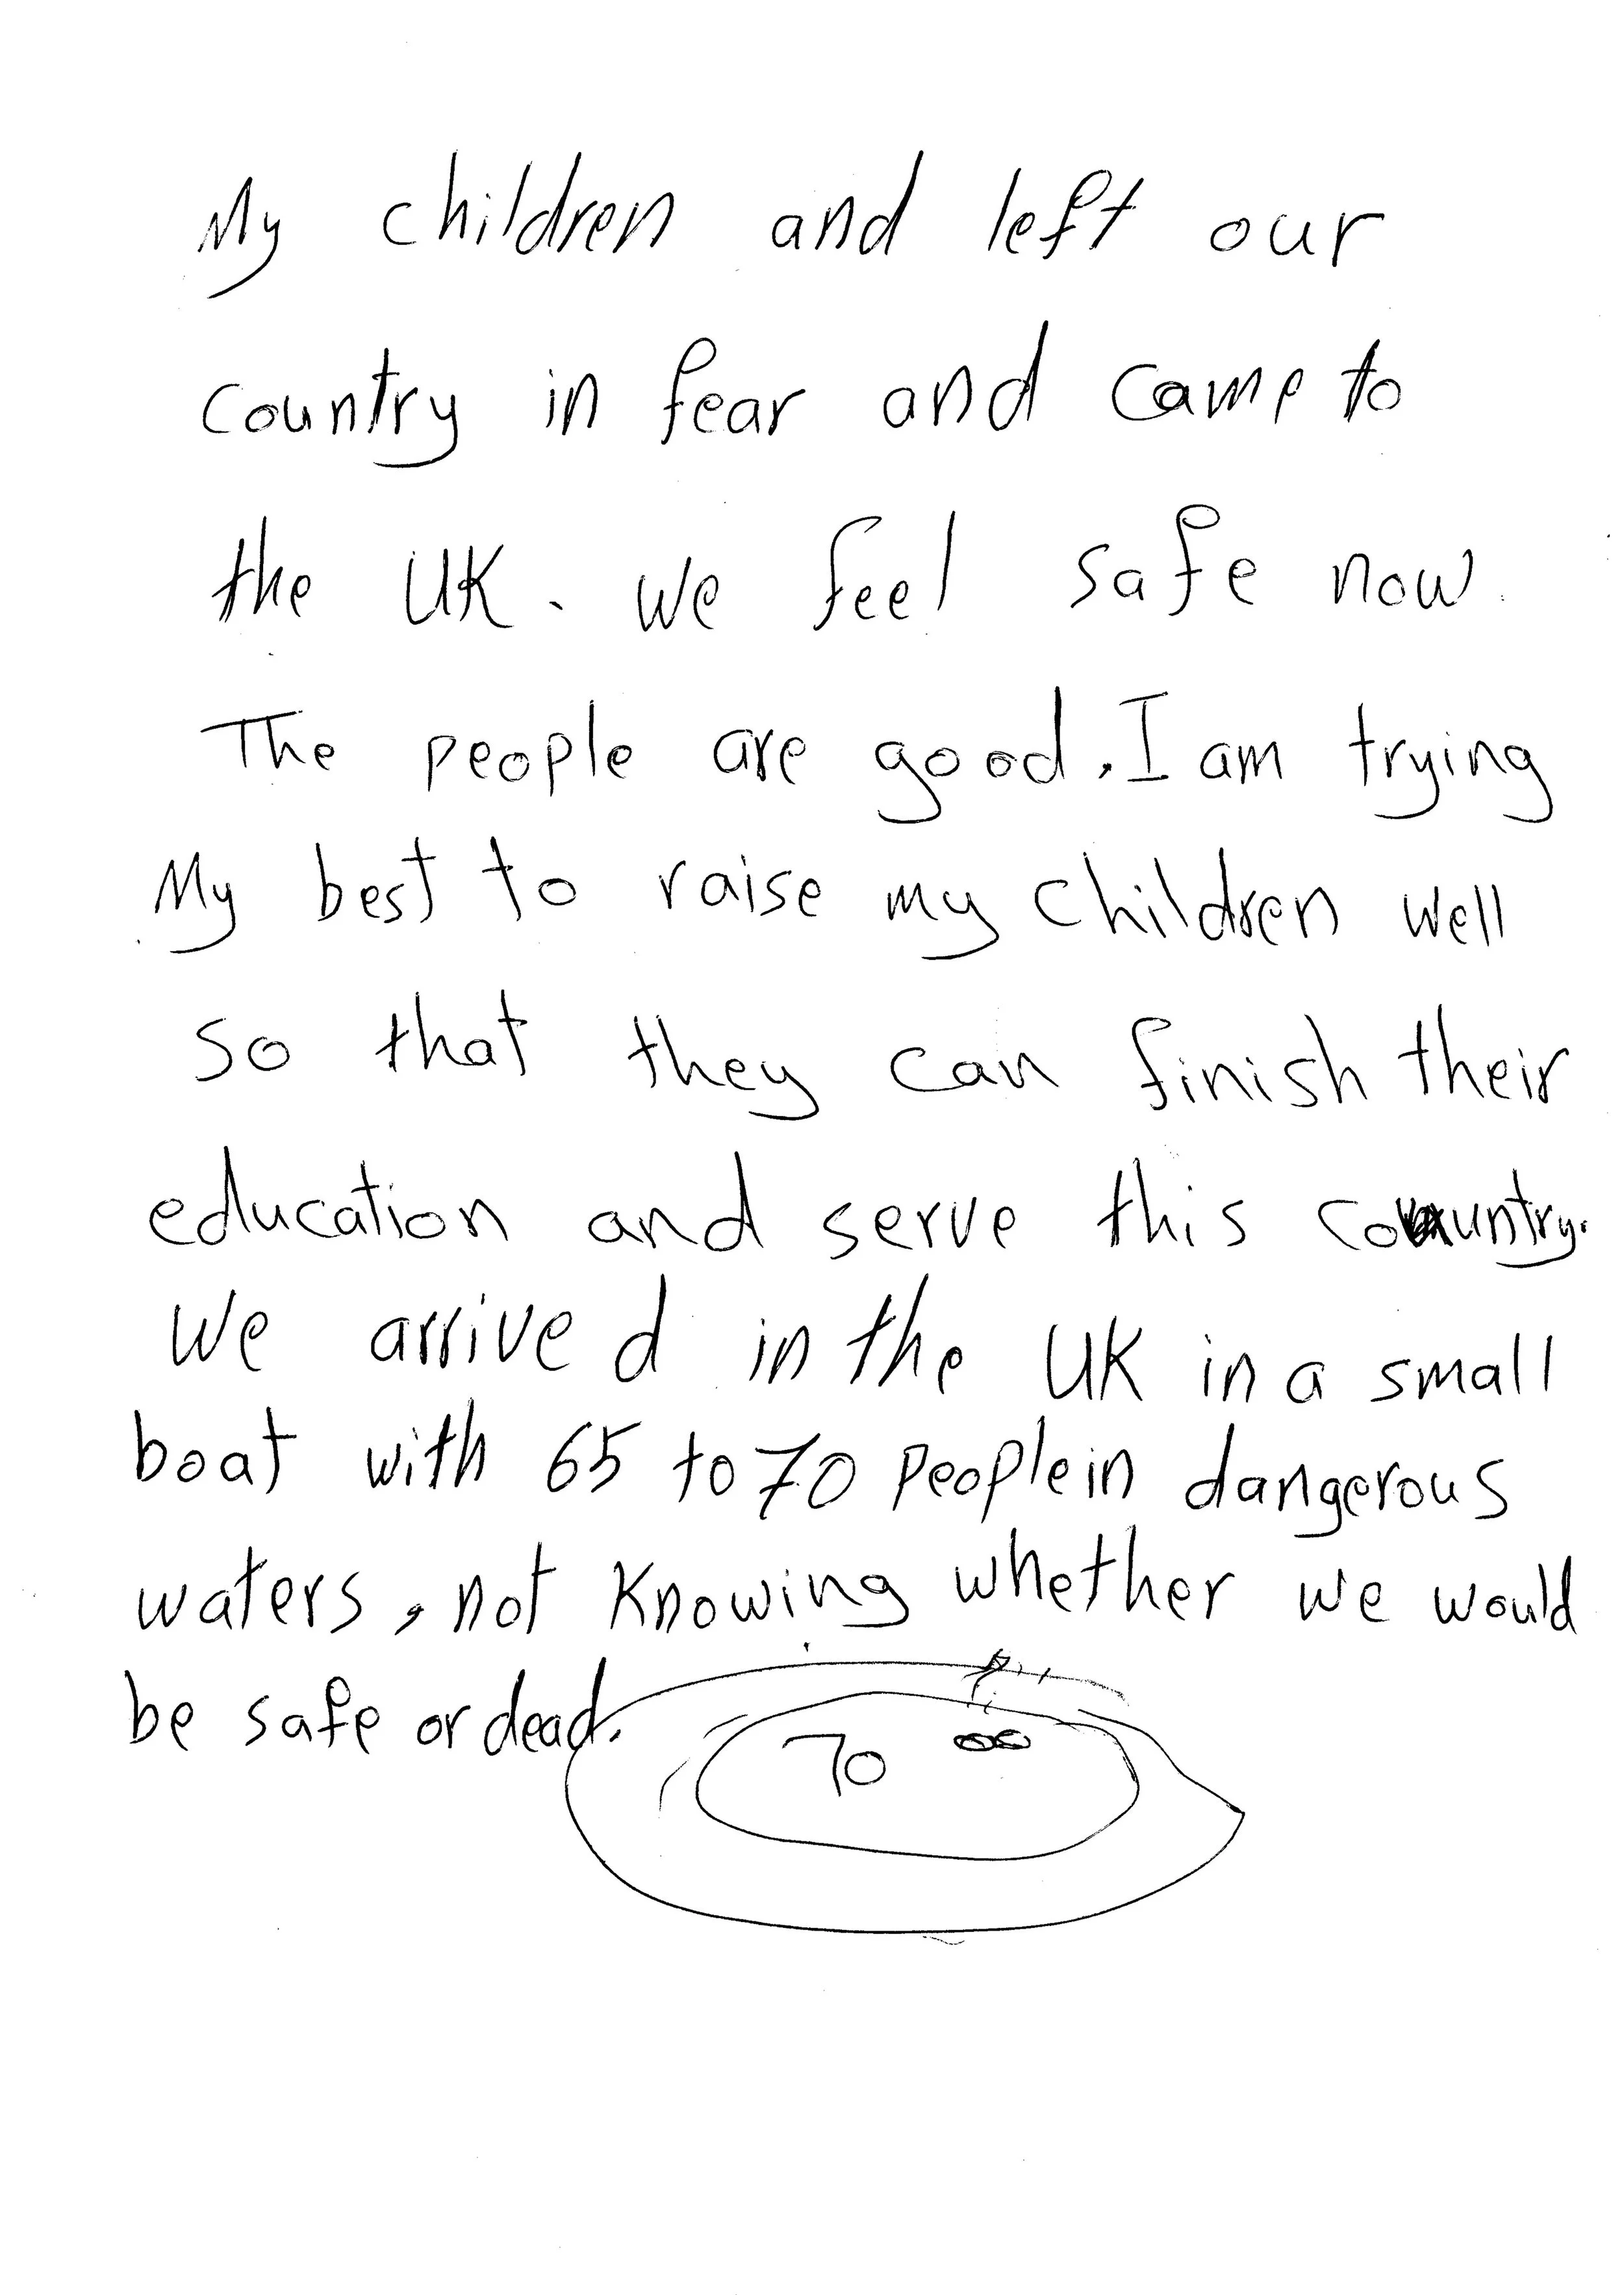 My children and left our
country in fear and came to
the UK. we feel safe now.
The people are good. I am trying
My best to raise my children well
so that they can finish their
education and serve this country.
We arrived in the UK in a small
boat with 65 to 70 people in dangerous
waters, not knowing whether we would
be safe or dead.
70